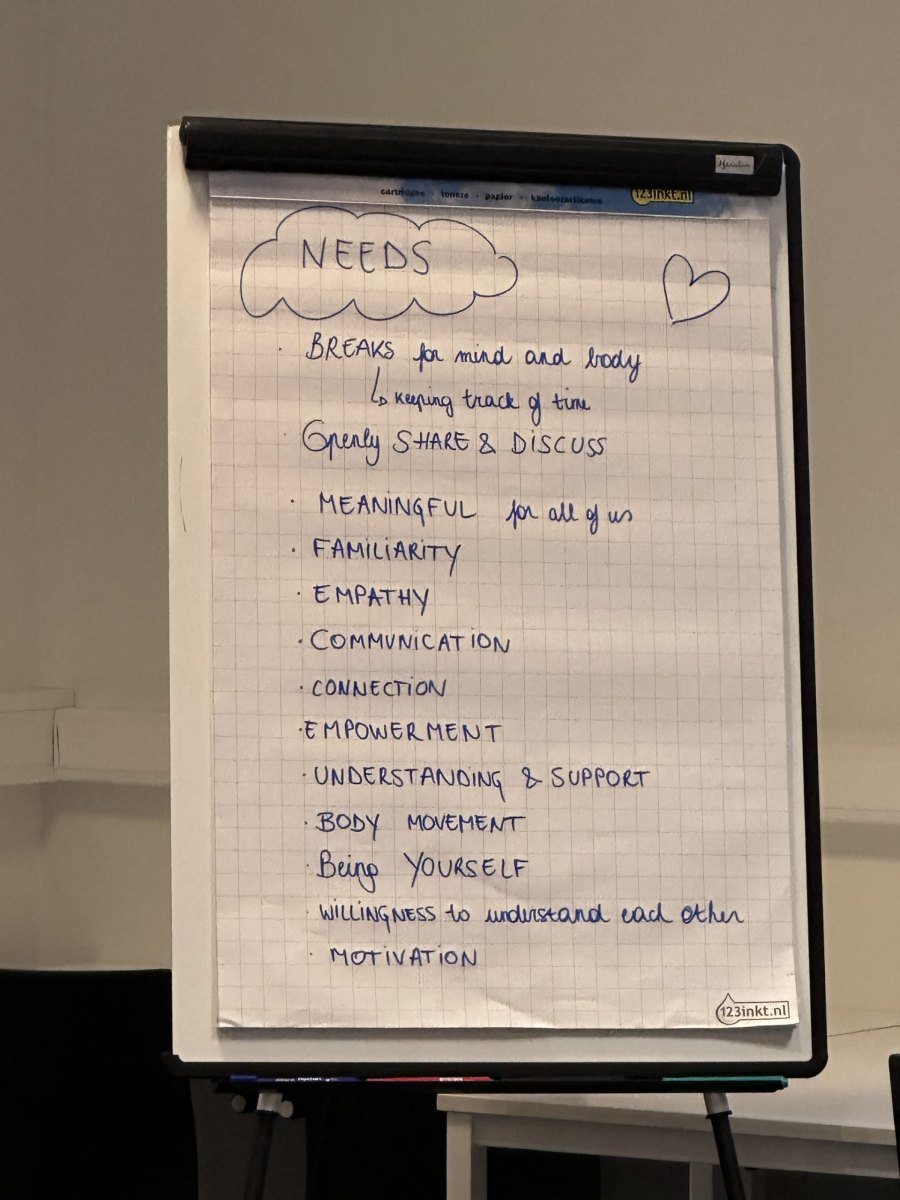 cartridges · toners · papier · kantoorartikelen
123inkt.nl
NEEDS
· BREAKS for mind and body
↳ keeping track of time
· Openly SHARE & DISCUSS
· MEANINGFUL for all of us
· FAMILIARITY
· EMPATHY
· COMMUNICATION
· CONNECTION
· EMPOWERMENT
· UNDERSTANDING & SUPPORT
· BODY MOVEMENT
· Being YOURSELF
· WILLINGNESS to understand each other
· MOTIVATION
123inkt.nl